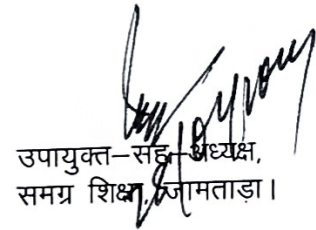 उपायुक्त–सह–अध्यक्ष,
समग्र शिक्षा, जामताड़ा।